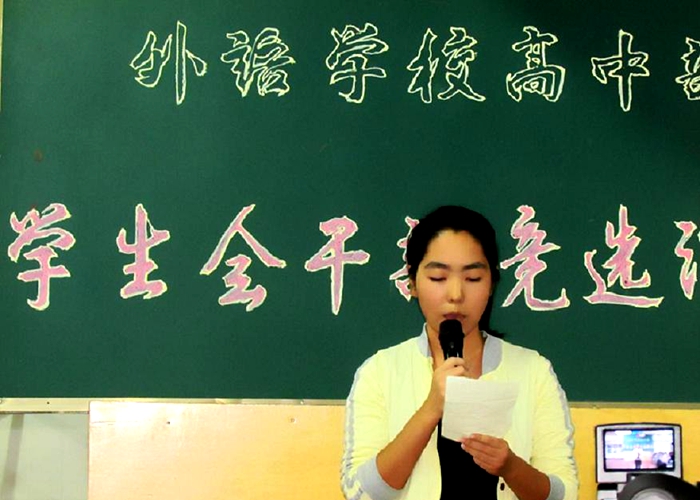 外语学校高中部
学生会干部竞选